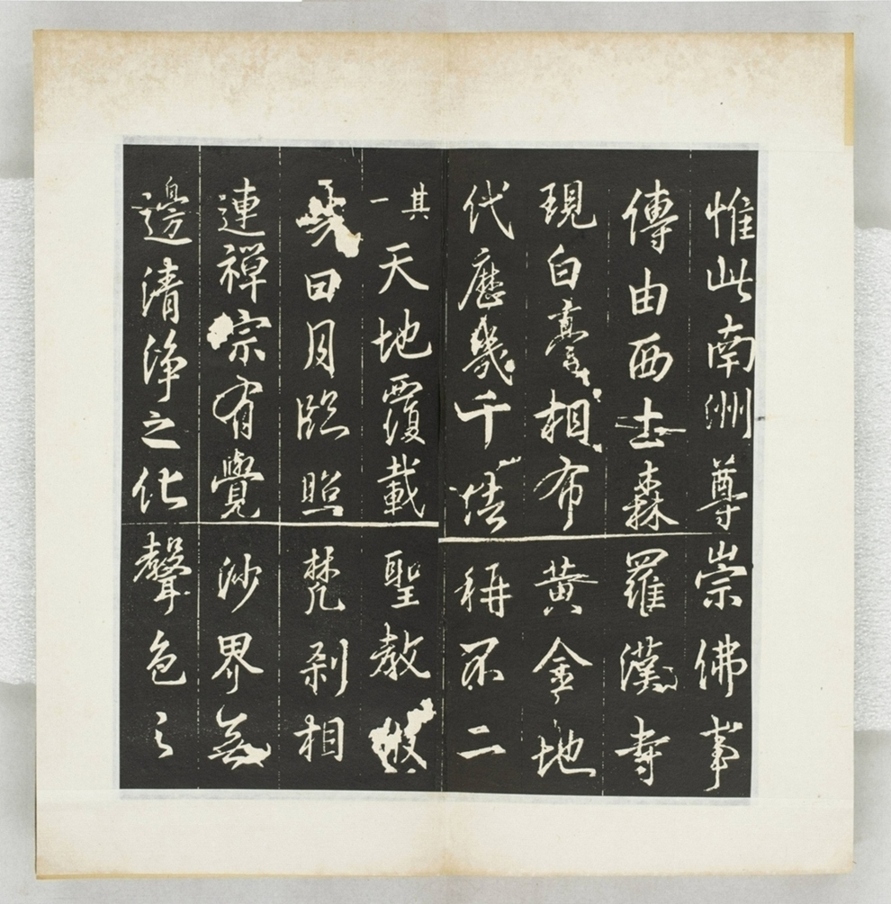 惟此南洲尊崇佛事
傳由西土森羅漢寺
現白毫相布黃金地
代歷幾千法稱不二
其一
天地覆載聖教
日月臨照梵剎相
連禪宗有覺沙界無
邊清淨之化聲色之